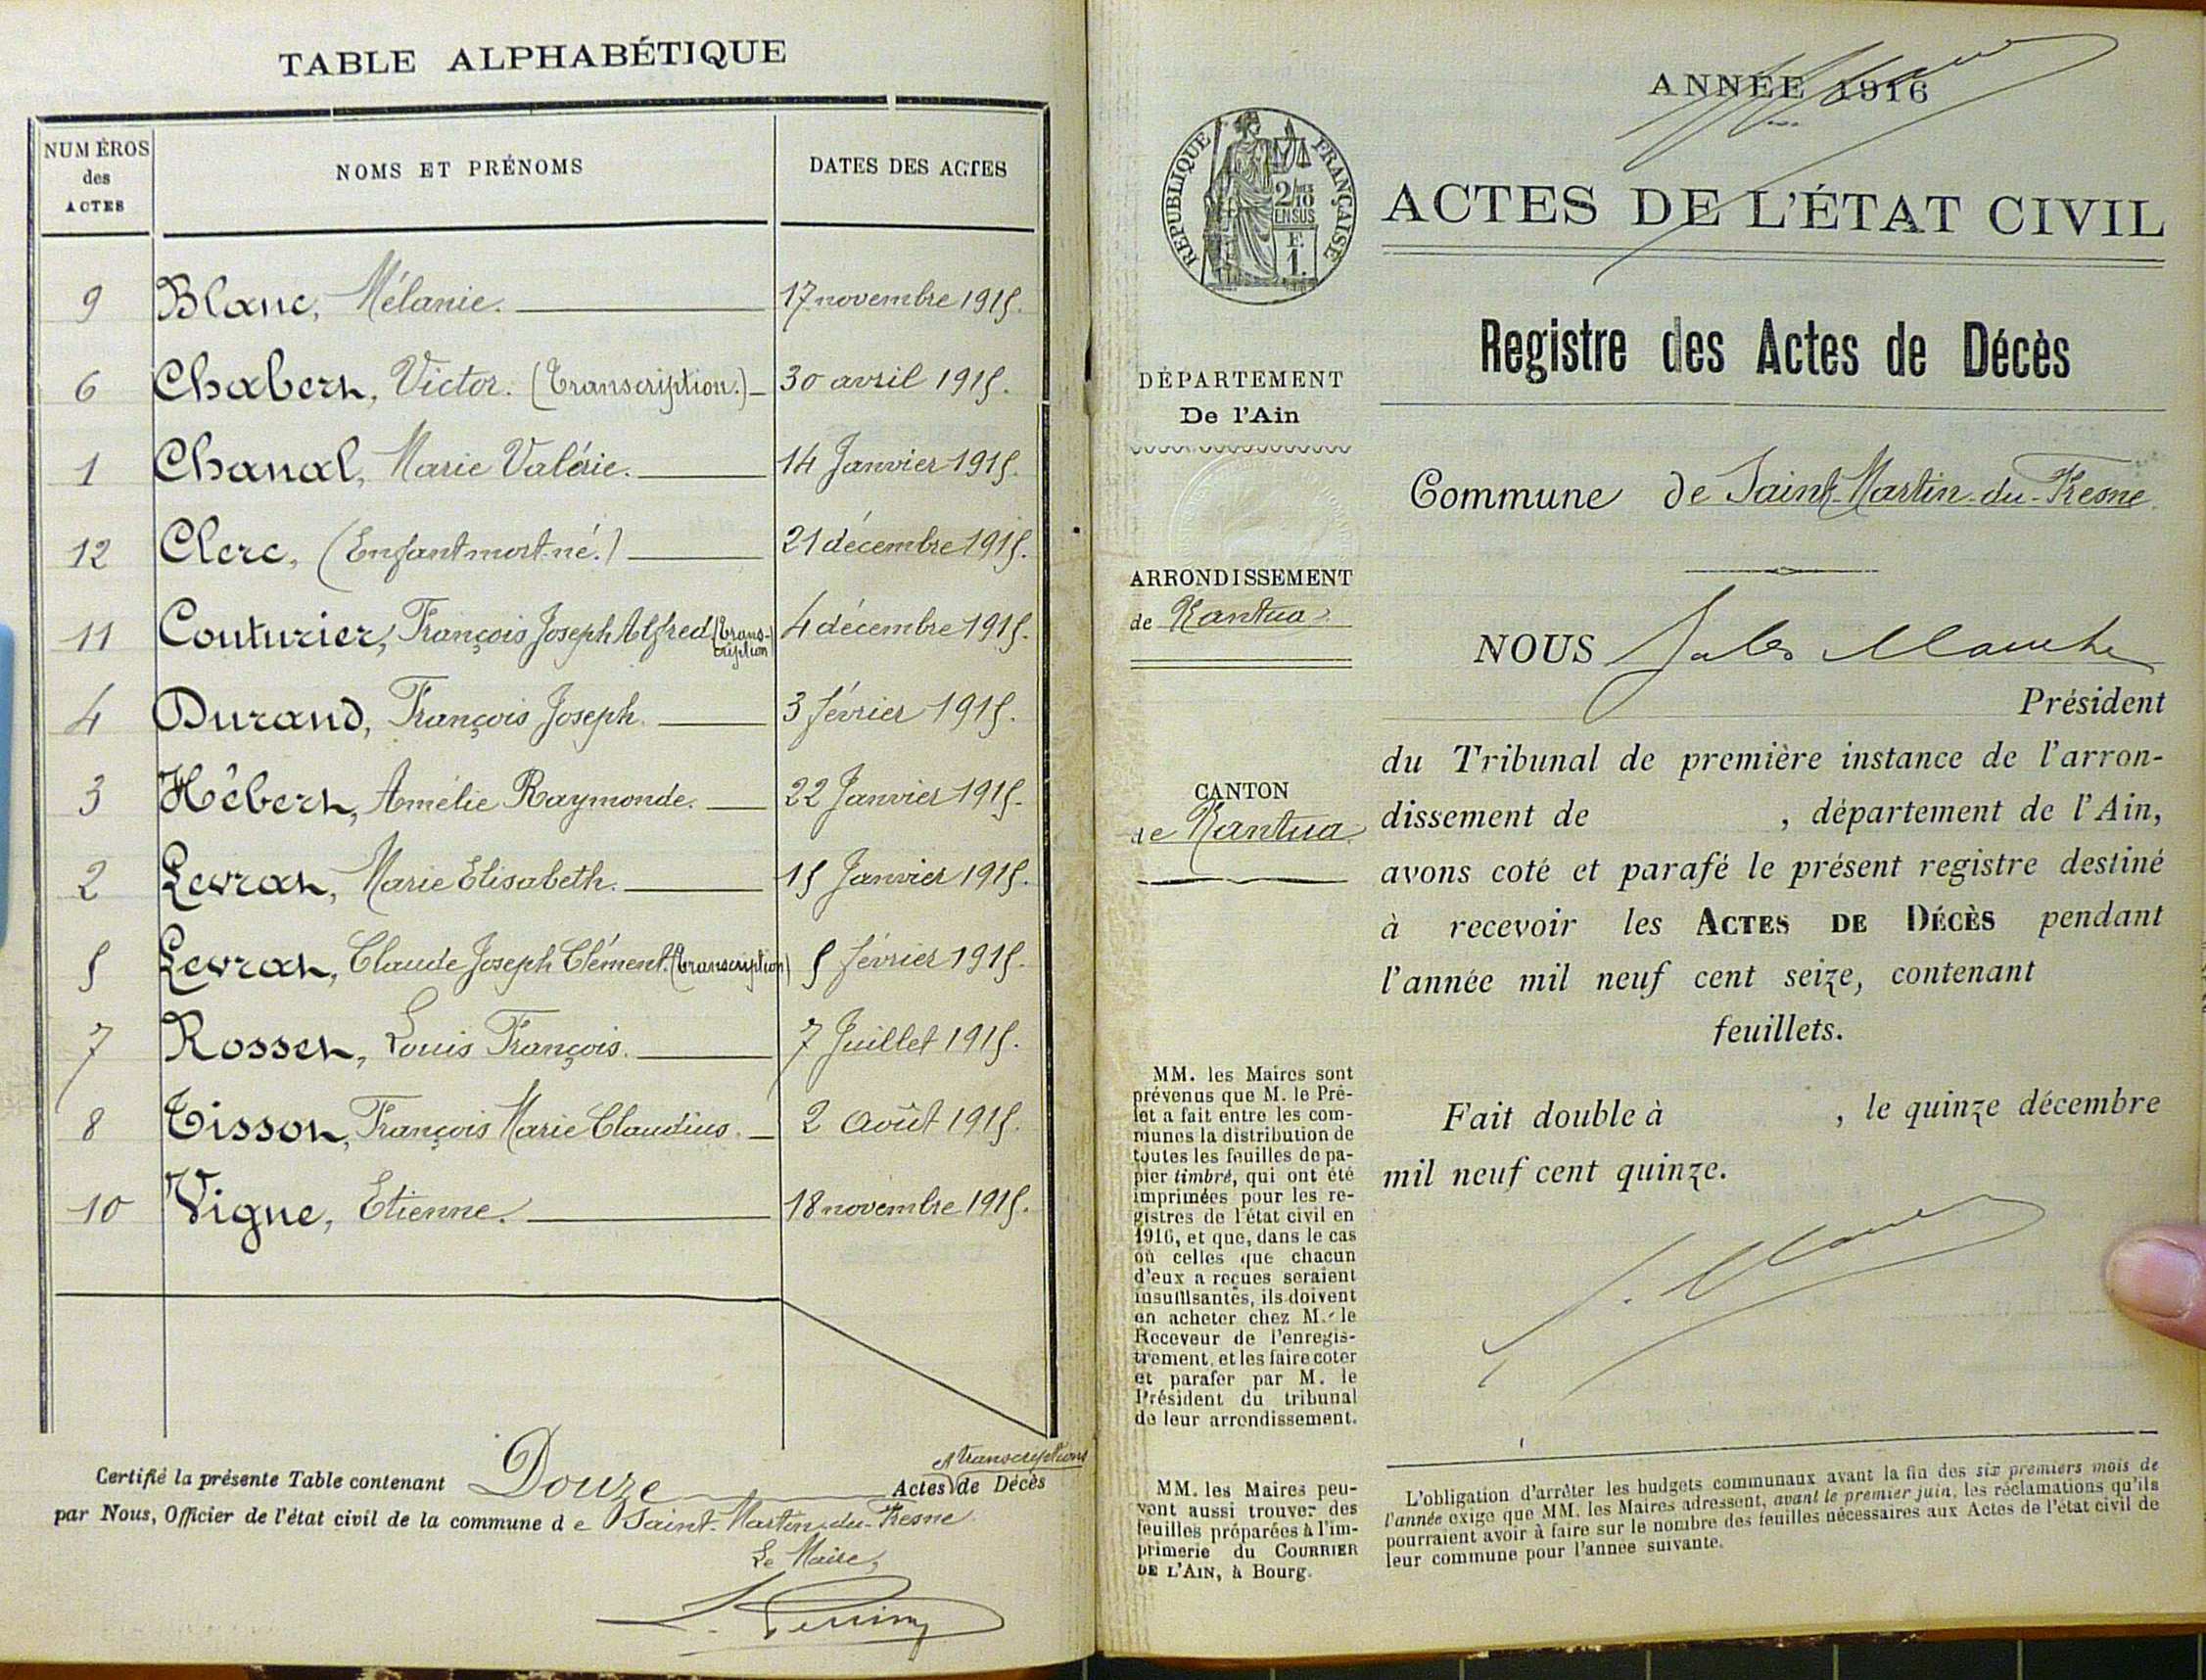 TABLE ALPHABÉTIQUE
NUMÉROS
des
ACTES
NOMS ET PRÉNOMS
DATES DES ACTES
9 Blanc, Mélanie. 17 novembre 1915.
6 Chabert, Victor. (Transcription.) 30 avril 1915.
1 Chanal, Marie Valérie. 14 Janvier 1915.
12 Clerc, (Enfant mort-né.) 21 décembre 1915.
11 Couturier, François Joseph Alfred (Trans-
cription) 4 décembre 1915.
4 Durand, François Joseph. 3 février 1915.
3 Hébert, Amélie Raymonde. 22 Janvier 1915.
2 Levrat, Marie Elisabeth. 15 Janvier 1915.
5 Levrat, Claude Joseph Clément. (transcription) 5 février 1915.
7 Rosset, Louis François. 7 Juillet 1915.
8 Tissot, François Marie Claudius. 2 Août 1915.
10 Vigne, Etienne. 18 novembre 1915.
et transcriptions
Certifié la présente Table contenant Douze Actes de Décès
par Nous, Officier de l'état civil de la commune de Saint-Martin-du-Fresne
Le Maire,
ANNÉE 1916
RÉPUBLIQUE FRANÇAISE
2/10 EN SUS
F.
1.
ACTES DE L'ÉTAT CIVIL
Registre des Actes de Décès
DÉPARTEMENT
De l'Ain
Commune de Saint-Martin-du-Fresne
ARRONDISSEMENT
de Nantua
CANTON
de Nantua
NOUS Jules
Président
du Tribunal de première instance de l'arron-
dissement de , département de l'Ain,
avons coté et parafé le présent registre destiné
à recevoir les ACTES DE DÉCÈS pendant
l'année mil neuf cent seize, contenant
feuillets.
Fait double à , le quinze décembre
mil neuf cent quinze.
MM. les Maires sont
prévenus que M. le Pré-
fet a fait entre les com-
munes la distribution de
toutes les feuilles de pa-
pier timbré, qui ont été
imprimées pour les re-
gistres de l'état civil en
1916, et que, dans le cas
où celles que chacun
d'eux a reçues seraient
insuffisantes, ils doivent
en acheter chez M. le
Receveur de l'enregis-
trement, et les faire coter
et parafer par M. le
Président du tribunal
de leur arrondissement.
MM. les Maires peu-
vent aussi trouver des
feuilles préparées à l'im-
primerie du COURRIER
DE L'AIN, à Bourg.
L'obligation d'arrêter les budgets communaux avant la fin des six premiers mois de
l'année exige que MM. les Maires adressent, avant le premier juin, les réclamations qu'ils
pourraient avoir à faire sur le nombre des feuilles nécessaires aux Actes de l'état civil de
leur commune pour l'année suivante.